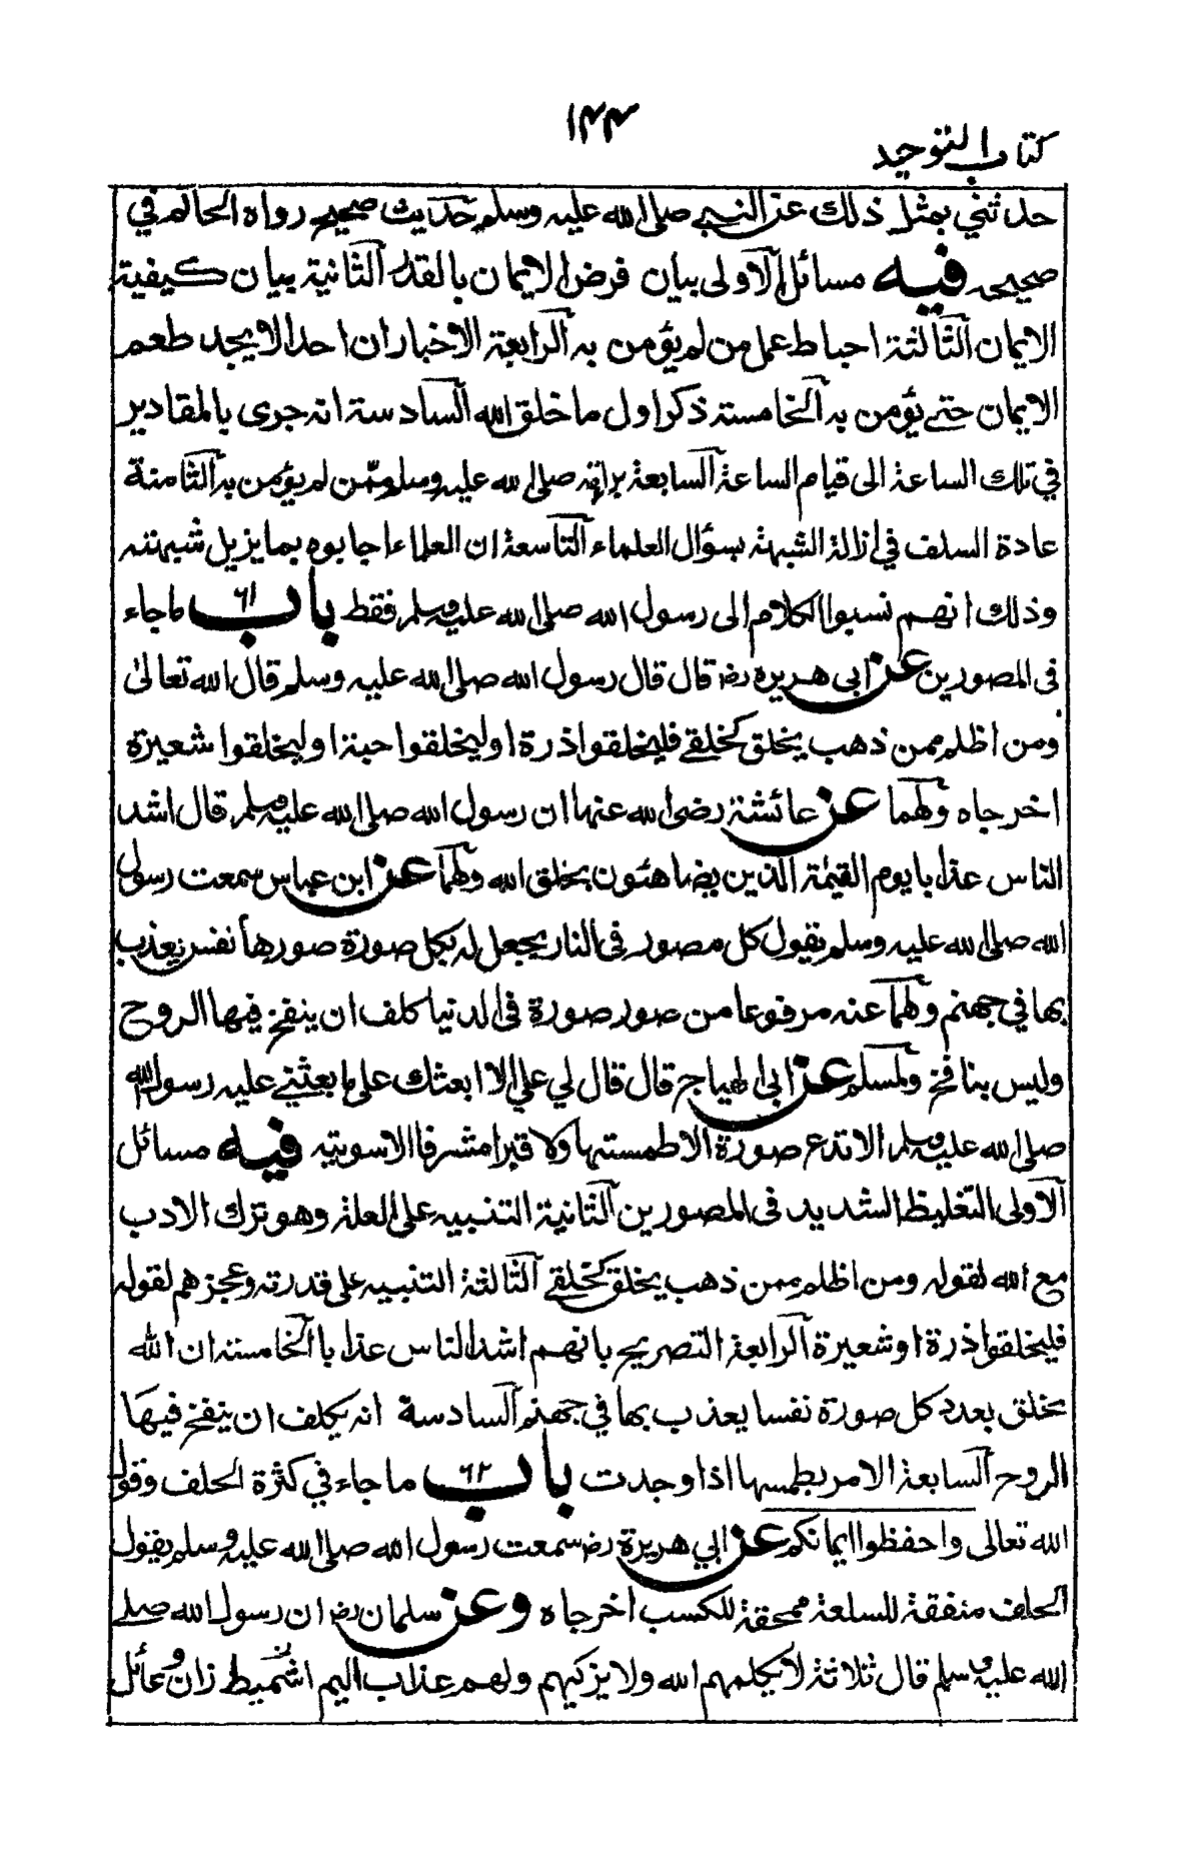 ١٤٤
كتاب التوحيد
حدثني بمثل ذلك عن النبي صلى الله عليه وسلم حديث صحيح رواه الحاكم في
صحيحه فيه مسائل الاولى بيان فرض الايمان بالقدر الثانية بيان كيفية
الايمان الثالثة احباط عمل من لم يؤمن به الرابعة الاخبار ان احدا لا يجد طعم
الايمان حتى يؤمن به الخامسة ذكر اول ما خلق الله السادسة انه جرى بالمقادير
في تلك الساعة الى قيام الساعة السابعة براءته صلى الله عليه وسلم ممن لم يؤمن به الثامنة
عادة السلف في ازالة الشبهة بسؤال العلماء التاسعة ان العلماء اجابوه بما يزيل شبهته
وذلك انهم نسبوا الكلام الى رسول الله صلى الله عليه وسلم فقط باب ٦١ ما جاء
فى المصورين عن ابى هريرة رضـ قال قال رسول الله صلى الله عليه وسلم قال الله تعالىٰ
ومن اظلم ممن ذهب يخلق كخلقي فليخلقوا ذرة او ليخلقوا حبة او ليخلقوا شعيرة
اخرجاه ولهما عن عائشة رضى الله عنها ان رسول الله صلى الله عليه وسلم قال اشد
الناس عذابا يوم القيٰمة الذين يضاهئون بخلق الله ولهما عن ابن عباس سمعت رسول
الله صلى الله عليه وسلم يقول كل مصور فى النار يجعل له بكل صورة صورها نفس يعذب
بها في جهنم ولهما عنه مرفوعا من صور صورة فى الدنيا كلف ان ينفخ فيها الروح
وليس بنافخ ولمسلم عن ابى الهياج قال قال لي علي الا ابعثك على ما بعثني عليه رسول الله
صلى الله عليه وسلم الا تدع صورة الا طمستها ولا قبرا مشرفا الا سويته فيه مسائل
الاولى التغليظ الشديد فى المصورين الثانية التنبيه على العلة وهو ترك الادب
مع الله لقوله ومن اظلم ممن ذهب يخلق كخلقي الثالثة التنبيه على قدرته وعجزهم لقوله
فليخلقوا ذرة او شعيرة الرابعة التصريح بانهم اشد الناس عذابا الخامسة ان الله
يخلق بعدد كل صورة نفسا يعذب بها في جهنم السادسة انه يكلف ان ينفخ فيها
الروح السابعة الامر بطمسها اذا وجدت باب ٦٢ ما جاء في كثرة الحلف وقول
الله تعالى واحفظوا ايمانكم عن ابي هريرة رضـ سمعت رسول الله صلى الله عليه وسلم يقول
الحلف منفقة للسلعة ممحقة للكسب اخرجاه وعن سلمان رضـ ان رسول الله صلى
الله عليه وسلم قال ثلاثة لا يكلمهم الله ولا يزكيهم ولهم عذاب اليم اشيمط زان وعائل